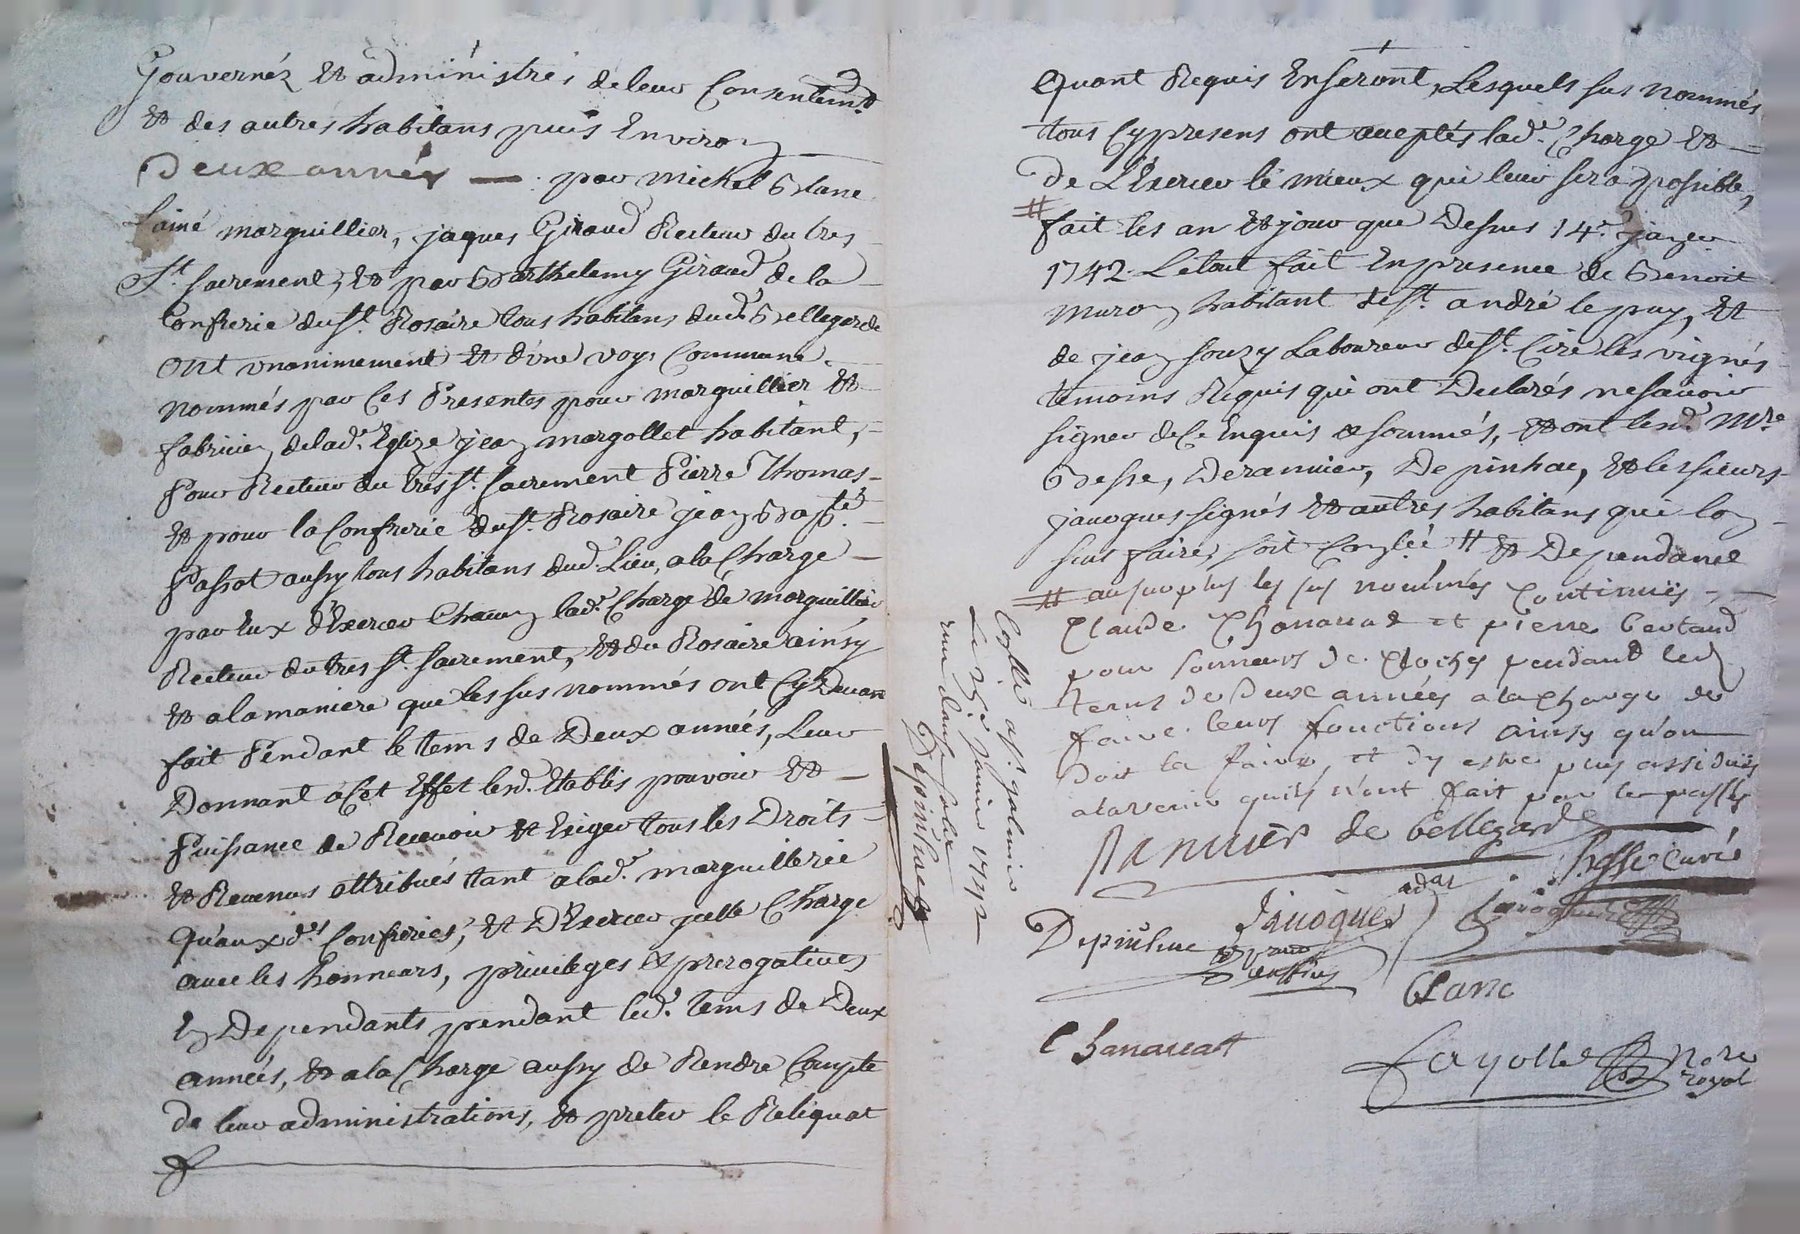 Gouvernéz & administrés de leur Consentemt
& des autres habitans puis Environ
Deux années — par Michel Blanc
Lainé marguillier, jaques Giraud Recteur du tres
St. sacrement, & par Barthelemy Giraud de la
Confrerie du St. Rosaire tous habitans dud. Bellegarde
ont unanimement & d'une voys Commune
nommés par Ces Presentes pour marguillier &
fabricien delade. Eglize jean margollet habitant,
Pour Recteur du tres St. sacrement Pierre Thomas
& pour la Confrerie du St. Rosaire jean Bapte.
Passot aussy tous habitans dud. Lieu, a la Charge
par Eux d'Exercer Chacun lade. Charge de marguillier
Recteur du tres St. sacrement, & du Rosaire ainsy
& a la maniere que les sus nommés ont Cy Devant
fait Pendant le tems de Deux années, Leur
Donnant a Cet Effet lesd. Etablis pouvoir &
Puissance de Recevoir & Exiger tous les Droits
& Revenus attribués tant a lade. marguillerie
Qu'auxdes. Confreries, & D'Exercer jcelle Charge
avec les honneurs, privileges & prerogatives
En Dependants pendant led. tems de Deux
années, & a la Charge aussy de Rendre Compte
de leur administrations, & preter le Reliquat
Quant Requis Enseront, Lesquels sus nommés
tous Cy presens ont acceptés lade. Charge &
De L'Exercer le mieux qui leur sera possible,
# fait les an & jour que Dessus 14e. janvier
1742. Le tout fait En presence de Benoit
Muron habitant de St. andré le puy, &
de jean souzy Laboureur de St. Cire les vignes
temoins Requis qui ont Declarés ne savoir
signer de Ce Enquis & sommés, & ont lesd. Mre
Besse, Deranvier, Depinhac, & les sieurs
javogues signés & autres habitans qui lon
sceu faire, soit Conslée # & Dependance
# au surplus les sus nommés Continuës
Claude Chanavat et pierre bertaud
pour sonneurs de Cloches pendant led.
tems de Deux années a la Charge de
faire leurs fonctions ainsy qu'on
doit le faire, et d'y estre plus assiduës
a lavenir quils n'ont fait par le passés
Ranvier de bellegarde
Besse curé
Javogues
Javogues
Depinhac
Blanc
Chanavat
fayolle nore
royal
Collé a St. galmier
Le 25e janvier 1742
recu douze sols
Depinhac